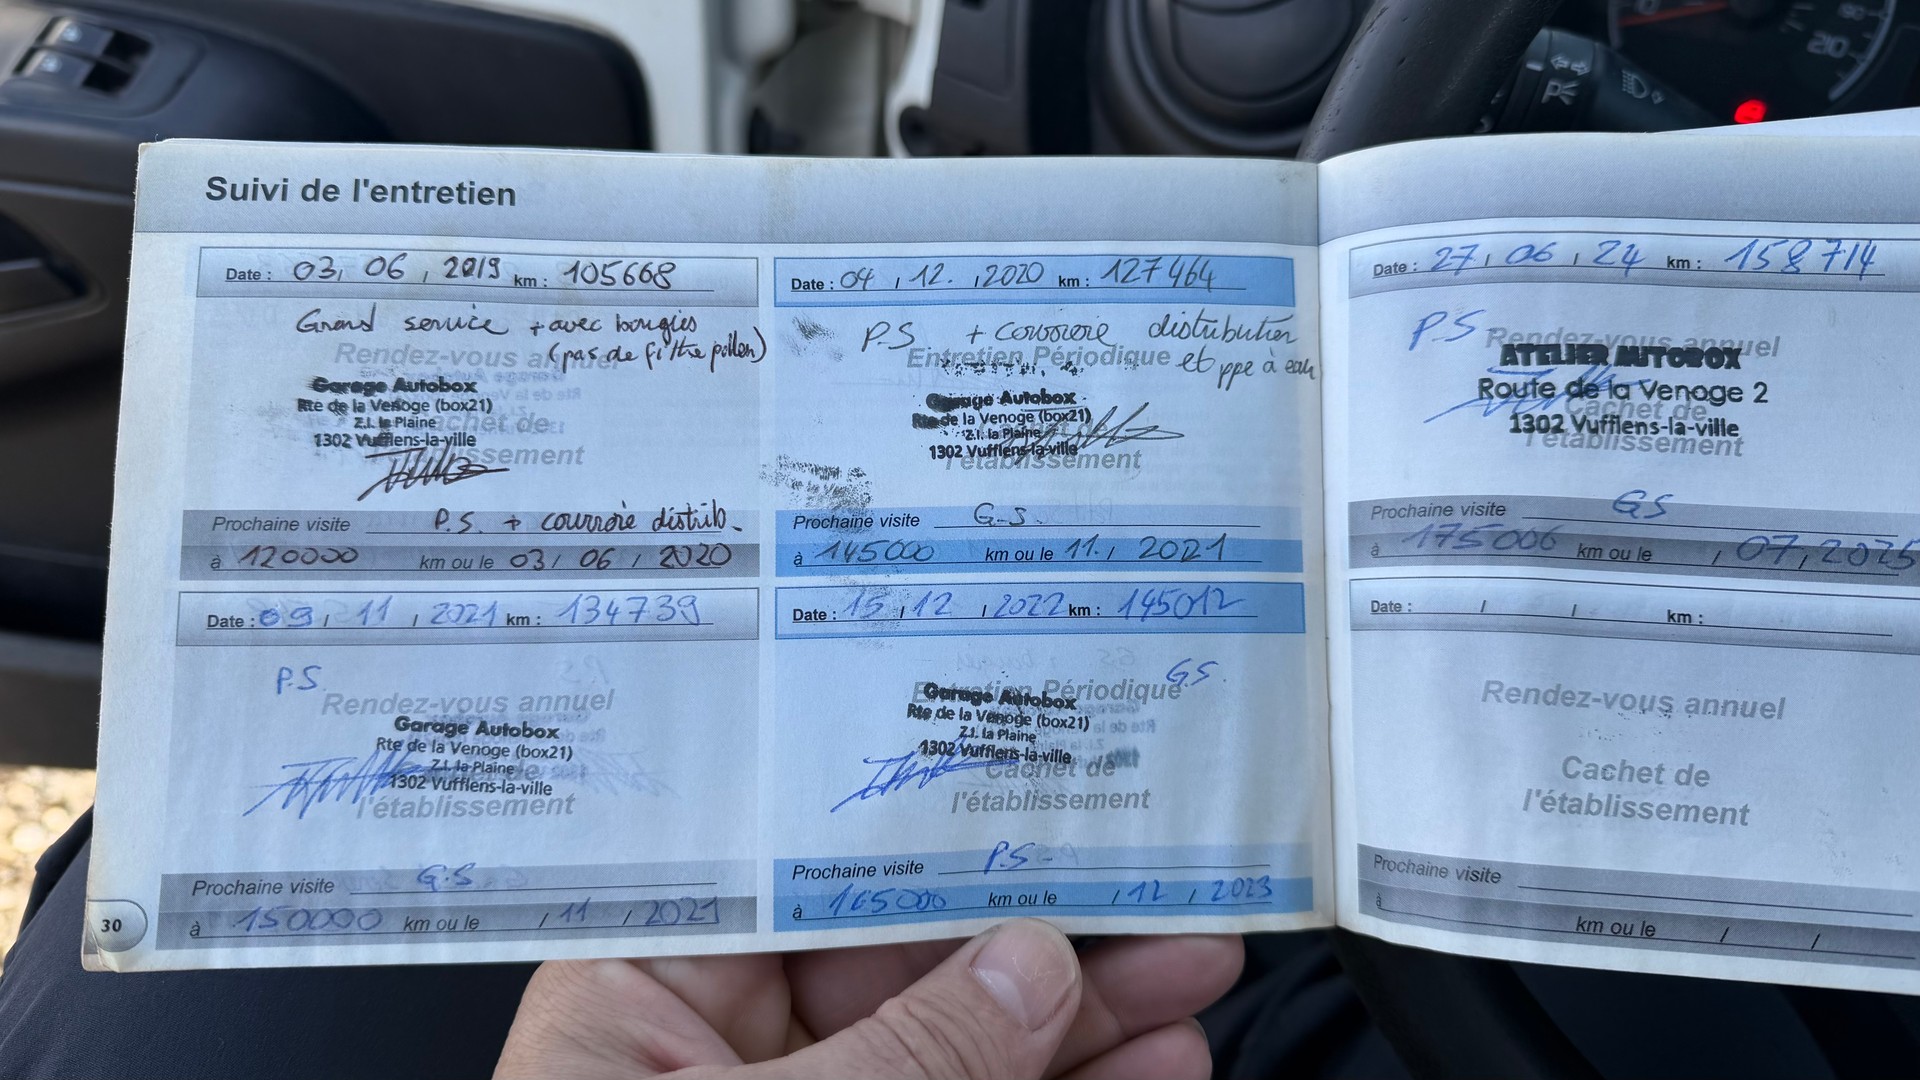 Suivi de l'entretien
Date : 03, 06, 2019 km : 105668
Grand service + avec bougies
(pas de filtre pollen)
Rendez-vous annuel
Garage Autobox
Rte de la Venoge (box21)
Z.I. la Plaine
1302 Vufflens-la-ville
Cachet de
l'établissement
Prochaine visite P.S. + courroie distrib.
à 120000 km ou le 03 / 06 / 2020
Date : 04 / 12. / 2020 km : 127464
P.S + courroie distribution
et ppe à eau
Entretien Périodique
Garage Autobox
Rte de la Venoge (box21)
Z.I. la Plaine
1302 Vufflens-la-ville
l'établissement
Prochaine visite G-S.
à 145000 km ou le 11. / 2021
Date : 09 / 11 / 2021 km : 134739
P.S
Rendez-vous annuel
Garage Autobox
Rte de la Venoge (box21)
Z.I. la Plaine
1302 Vufflens-la-ville
l'établissement
Prochaine visite G.S
à 150000 km ou le / 11 / 2021
Date : 15 / 12 / 2022 km : 145012
G.S.
Entretien Périodique
Garage Autobox
Rte de la Venoge (box21)
Z.I. la Plaine
1302 Vufflens-la-ville
Cachet de
l'établissement
Prochaine visite P.S-
à 165000 km ou le / 12 / 2023
30
Date : 27 / 06 / 24 km : 158714
P.S.
Rendez-vous annuel
ATELIER AUTOBOX
Route de la Venoge 2
Cachet de
1302 Vufflens-la-ville
l'établissement
Prochaine visite GS
à 175000 km ou le / 07, 2025
Date : / / km :
Rendez-vous annuel
Cachet de
l'établissement
Prochaine visite
à km ou le / /
210